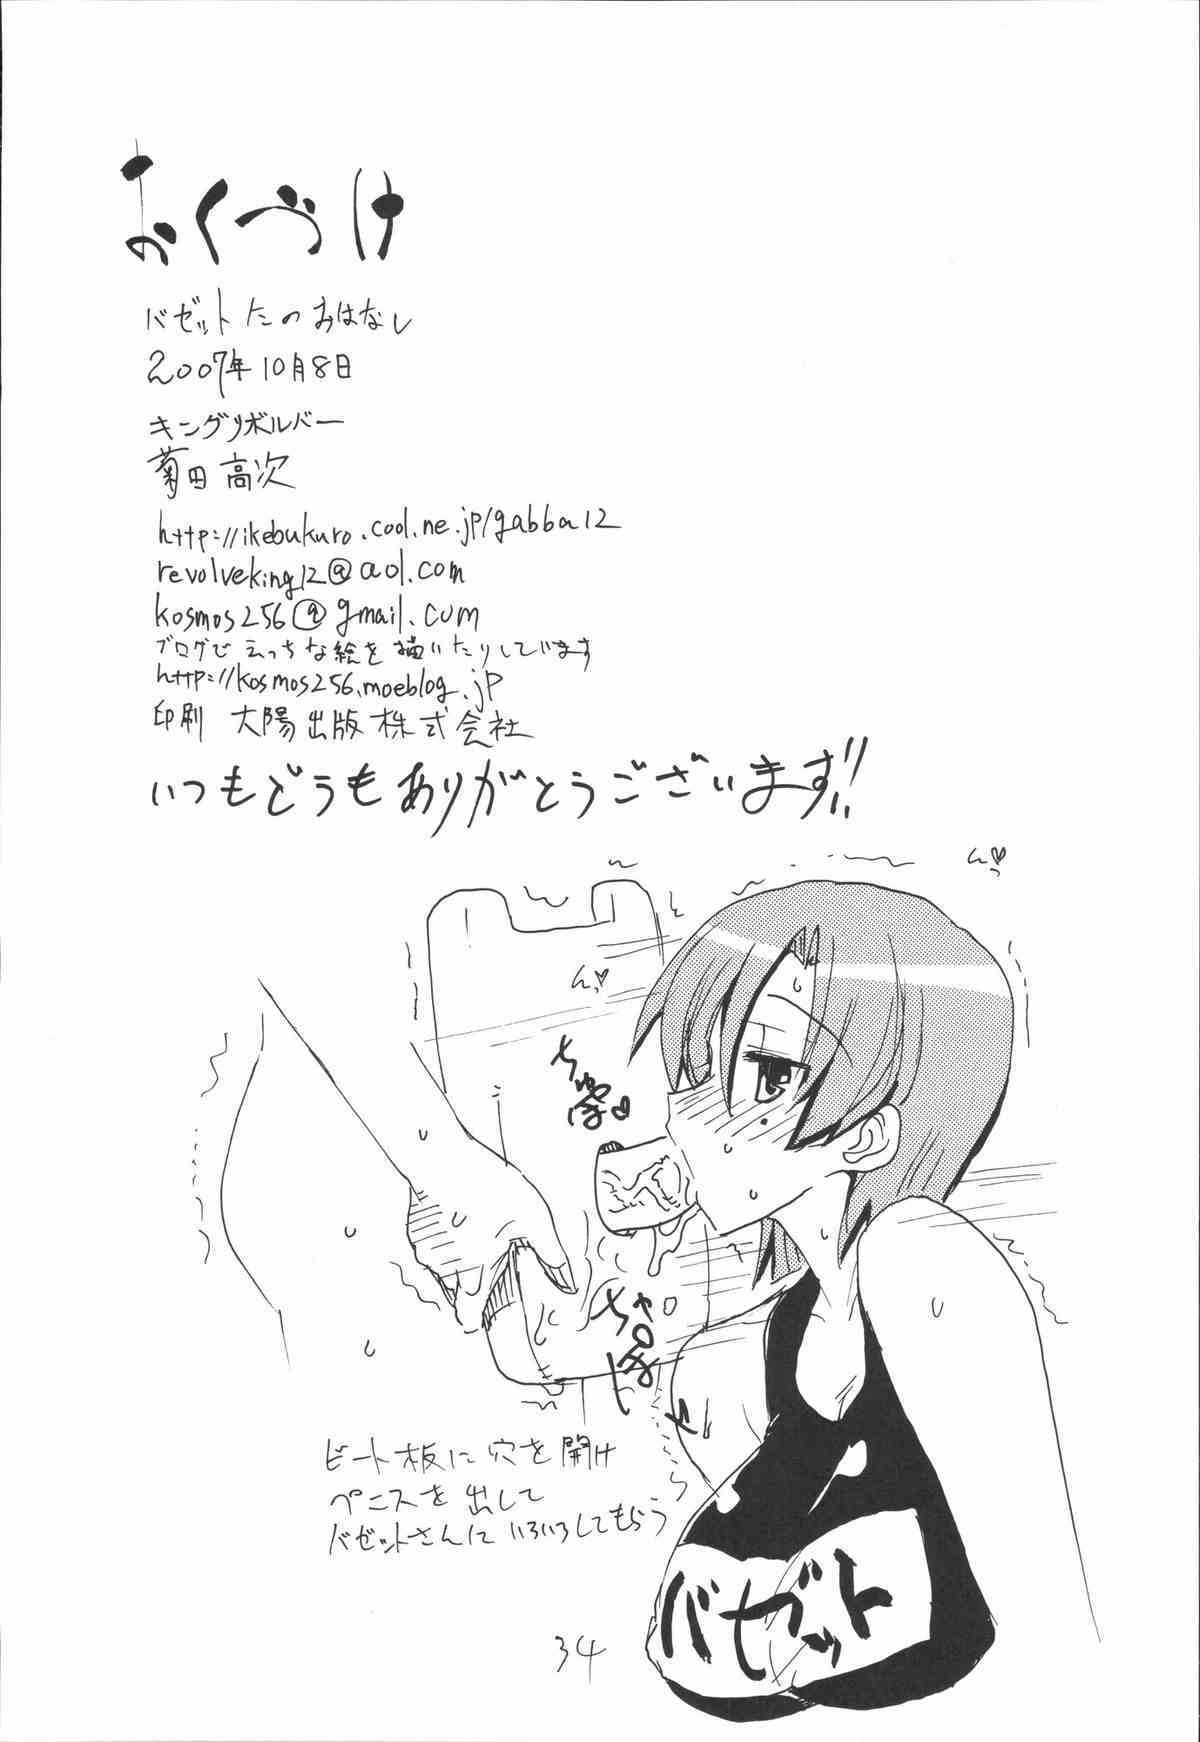 おくづけ
バゼットたのおはなし
2007年10月8日
キングリボルバー
菊田高次
http://ikebukuro.cool.ne.jp/gabba12
revolveking12@aol.com
kosmos256@gmail.com
ブログでえっちな絵を描いたりしています
http://kosmos256.moeblog.jp
印刷 大陽出版株式会社
いつもどうもありがとうございます!!
ん♡っ
んっ♡
ちゅぽ♡
ちゃぽ
ビート板に穴を開け
ペニスを出して
バゼットさんにいろいろしてもらう
バゼット
34